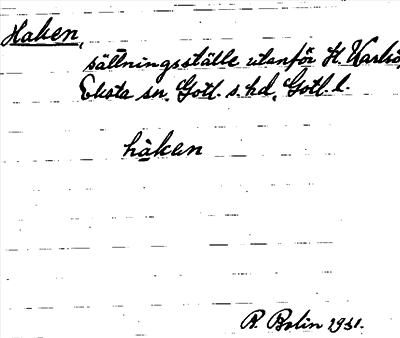 Haken,
sättningsställe utanför H. Karlsö,
Eksta sn. Gotl. s. hd. Gotl. l.
håken
R. Bolin 1931.